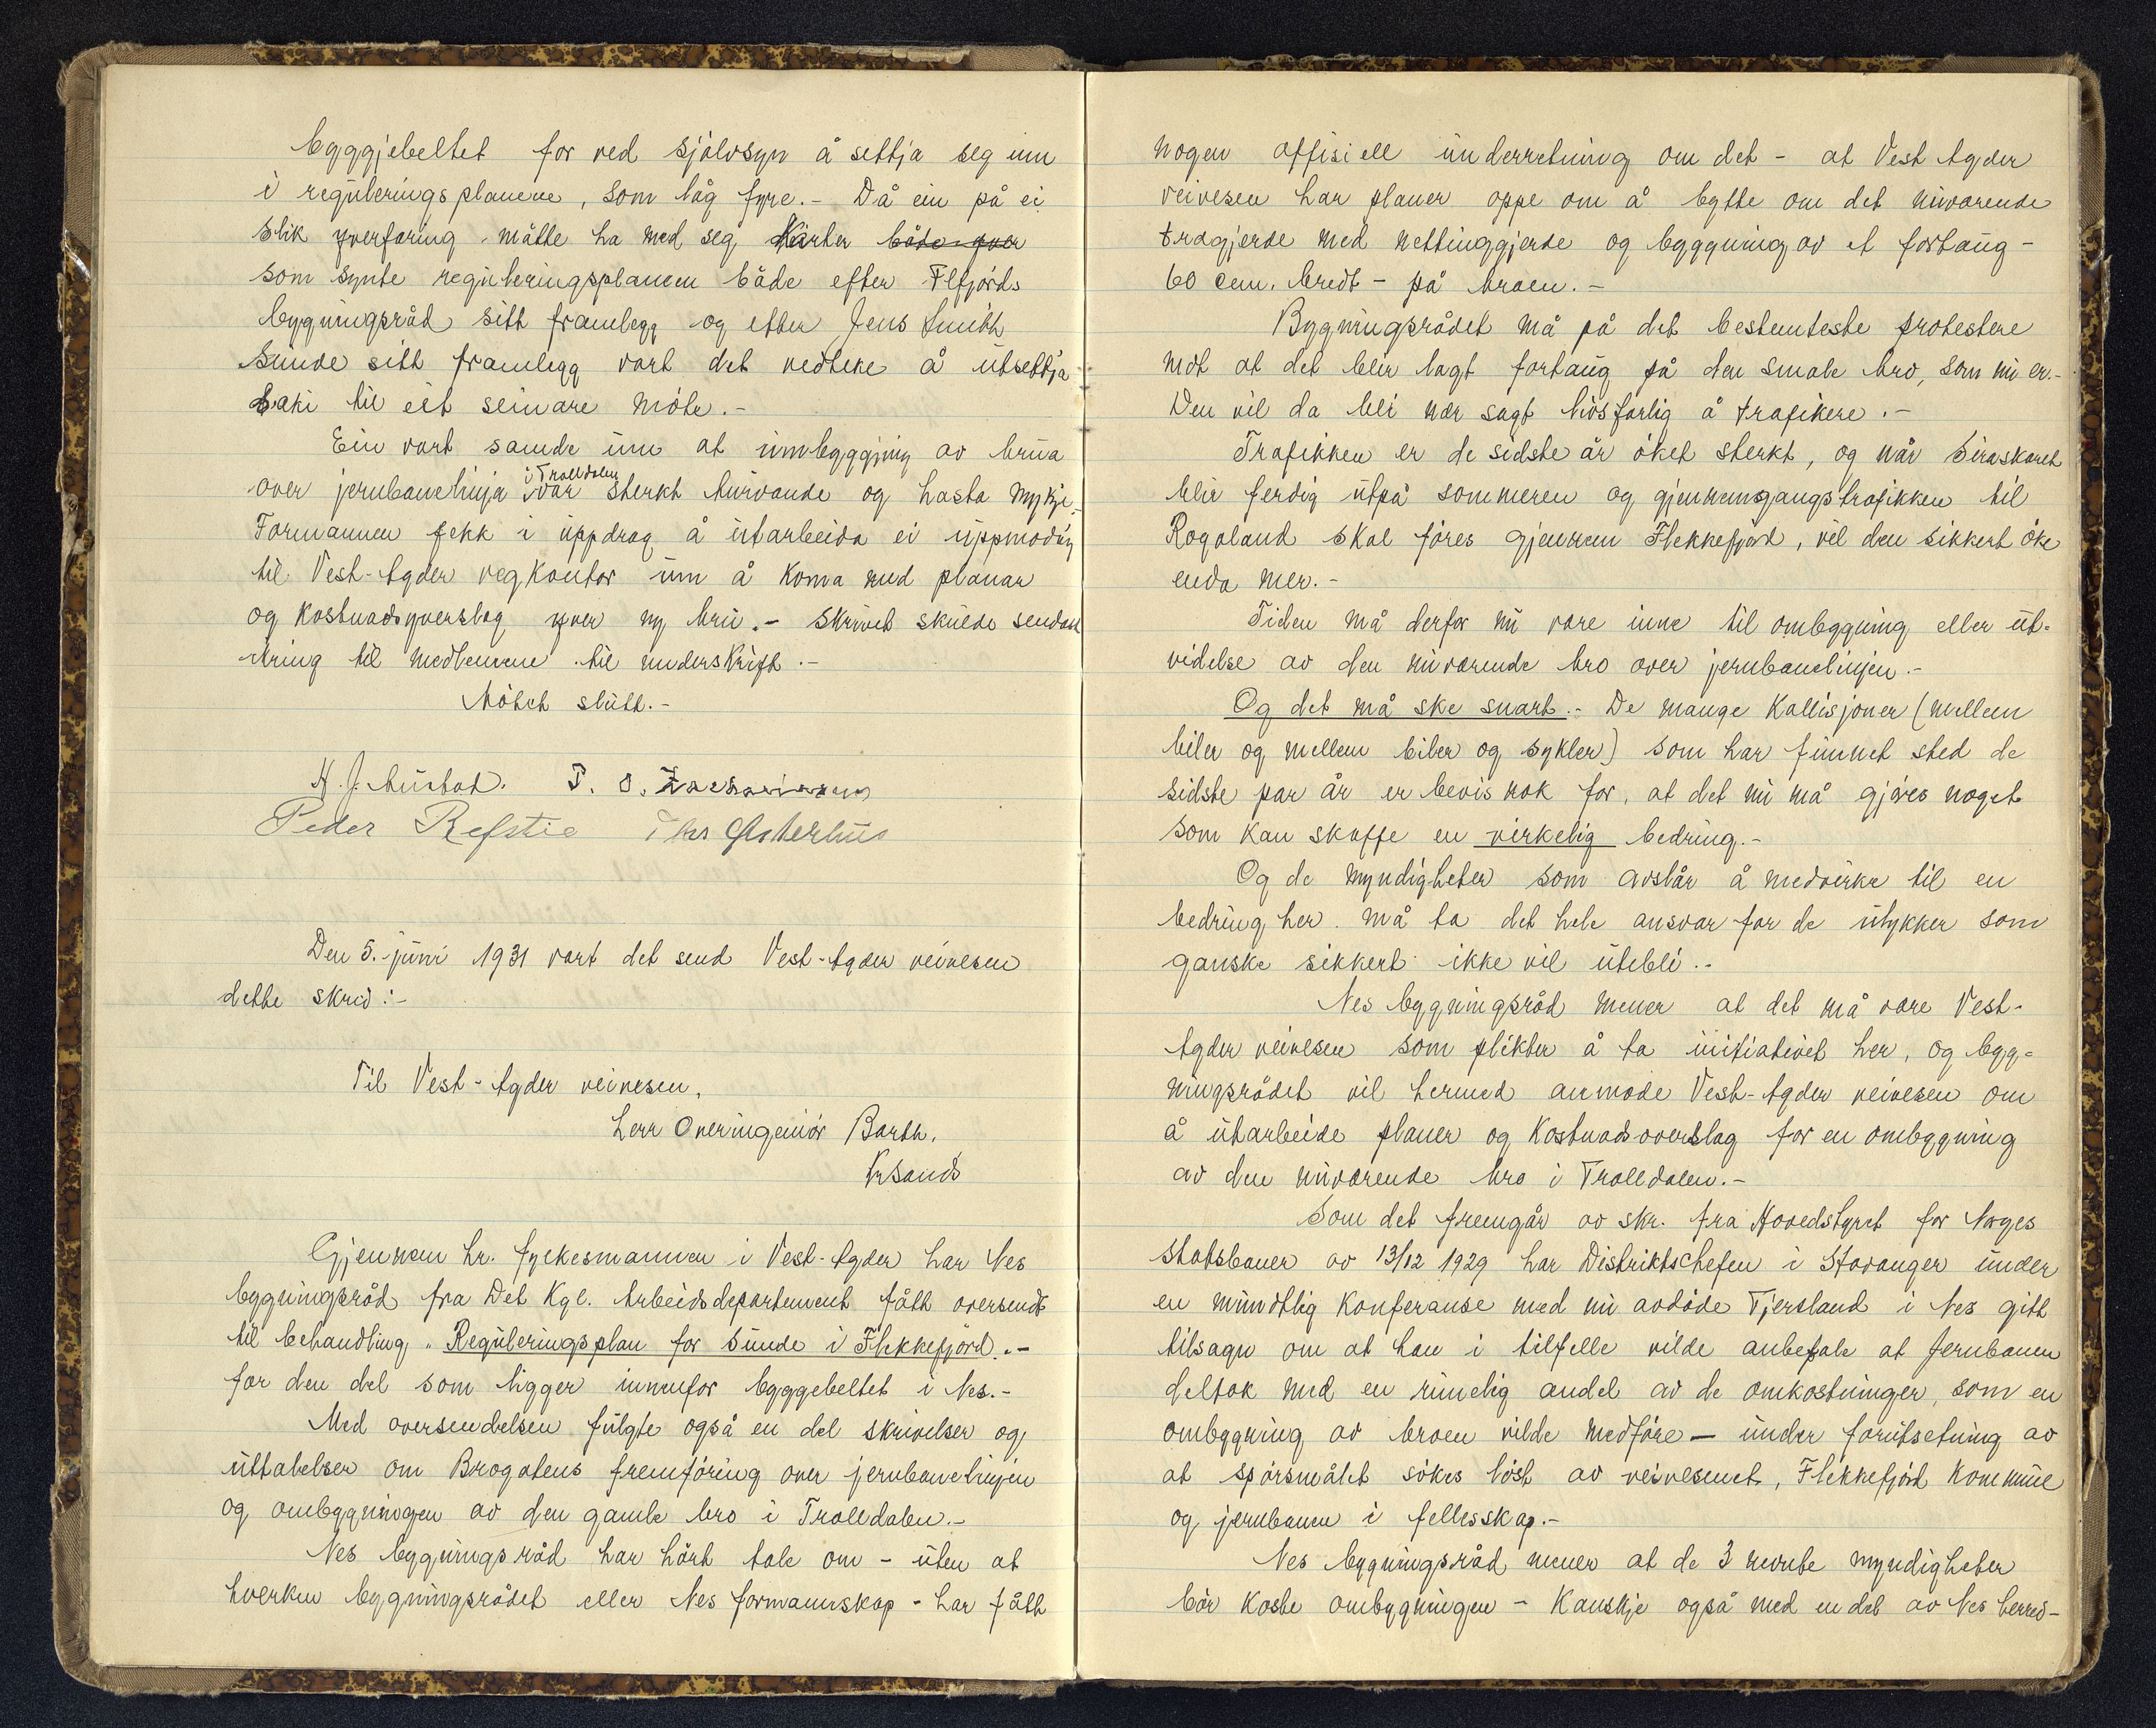 byggjebeltet for ved sjølvsyn å settja seg inn
i reguleringsplanene, som låg fyre.- Då ein på ei
slik yverfaring måtte ha med seg Karter både yver
som synte reguleringsplanen både efter Flfjords
bygningsråd sitt framlegg og etter Jens Smith
Sunde sitt framlegg vart det vedteke å utsettja
saki til eit seinare møte.-
Ein vart samde um at umbyggjing av brua
over jernbanelinja i Trolldalen var sterkt turvande og hasta mykje.
Formannen fekk i uppdrag å utarbeida ei uppmoding
til Vest-Agder vegkontor um å koma med planar
og kostnadsyverslag yver ny bru.- Skrivet skulde sendast
kring til medlemene til underskrift.-
Møtet slutt.-
P. O. Zachariassen
Peder Refstie
Den 5. juni 1931 vart det send Vest-Agder veivesen
dette skriv:-
Til Vest-Agder veivesen,
Herr Overingeniør Barth,
Krsand
Gjennem hr. fylkesmannen i Vest-Agder har Nes
bygningsråd fra Det Kgl. Arbeidsdepartement fått oversendt
til behandling "Reguleringsplan for Sunde i Flekkefjord".-
for den del som ligger innenfor byggebeltet i Nes.-
Med oversendelsen fulgte også en del skrivelser og
uttalelser om Brogatens fremføring over jernbanelinjen
og ombygningen av den gamle bro i Trolldalen.-
Nes bygningsråd har hørt tale om - uten at
hverken bygningsrådet eller Nes formannskap - har fått
nogen offisiell underretning om det - at Vest Agder
veivesen har planer oppe om å bytte om det nuværende
tregjerde med nettinggjerde og byggning av et fortaug -
60 cem. bredt - på broen.-
Bygningsrådet må på det bestemteste protestere
mot at det blir lagt fortaug på den smale bro, som nu er.-
Den vil da bli nær sagt livsfarlig å trafikere.-
Trafikken er de sidste år øket sterkt, og når Siraskaret
blir ferdig utpå sommeren og gjennemgangstrafikken til
Rogaland skal føres gjennem Flekkefjord, vil den sikkert øke
enda mer.-
Tiden må derfor nu være inne til ombygging eller ut-
videlse av den nuværende bro over jernbanelinjen.-
Og det må ske snart.- De mange kollisjoner (mellem
biler og mellem biler og sykler) som har funnet sted de
sidste par år er bevis nok for, at det nu må gjøres noget
som kan skaffe en virkelig bedring.-
Og de myndigheter som avslår å medvirke til en
bedring her må ta det hele ansvar for de ulykker som
ganske sikkert ikke vil utebli.-
Nes bygningsråd mener at det må være Vest-
Agder veivesen som plikter å ta initiativet her, og byg-
ningsrådet vil hermed anmode Vest-Agder veivesen om
å utarbeide planer og kostnadsoverslag for en ombygning
av den nuværende bro i Trolldalen.-
Som det fremgår av skr. fra Hovedstyret for Norges
statsbaner av 13/12 1929 har Distriktschefen i Stavanger under
en mundtlig konferanse med nu avdøde Tjersland i Nes gitt
tilsagn om at han i tilfelle vilde anbefale at Jernbanen
deltok med en rimelig andel av de omkostninger, som en
ombygning av broen vilde medføre - under forutsetning av
at spørsmålet søkes løst av veivesenet, Flekkefjord Kommune
og jernbanen i fellesskap.-
Nes bygningsråd mener at de 3 nevnte myndigheter
bør koste ombygningen - kanskje også med en del av Nes herred-